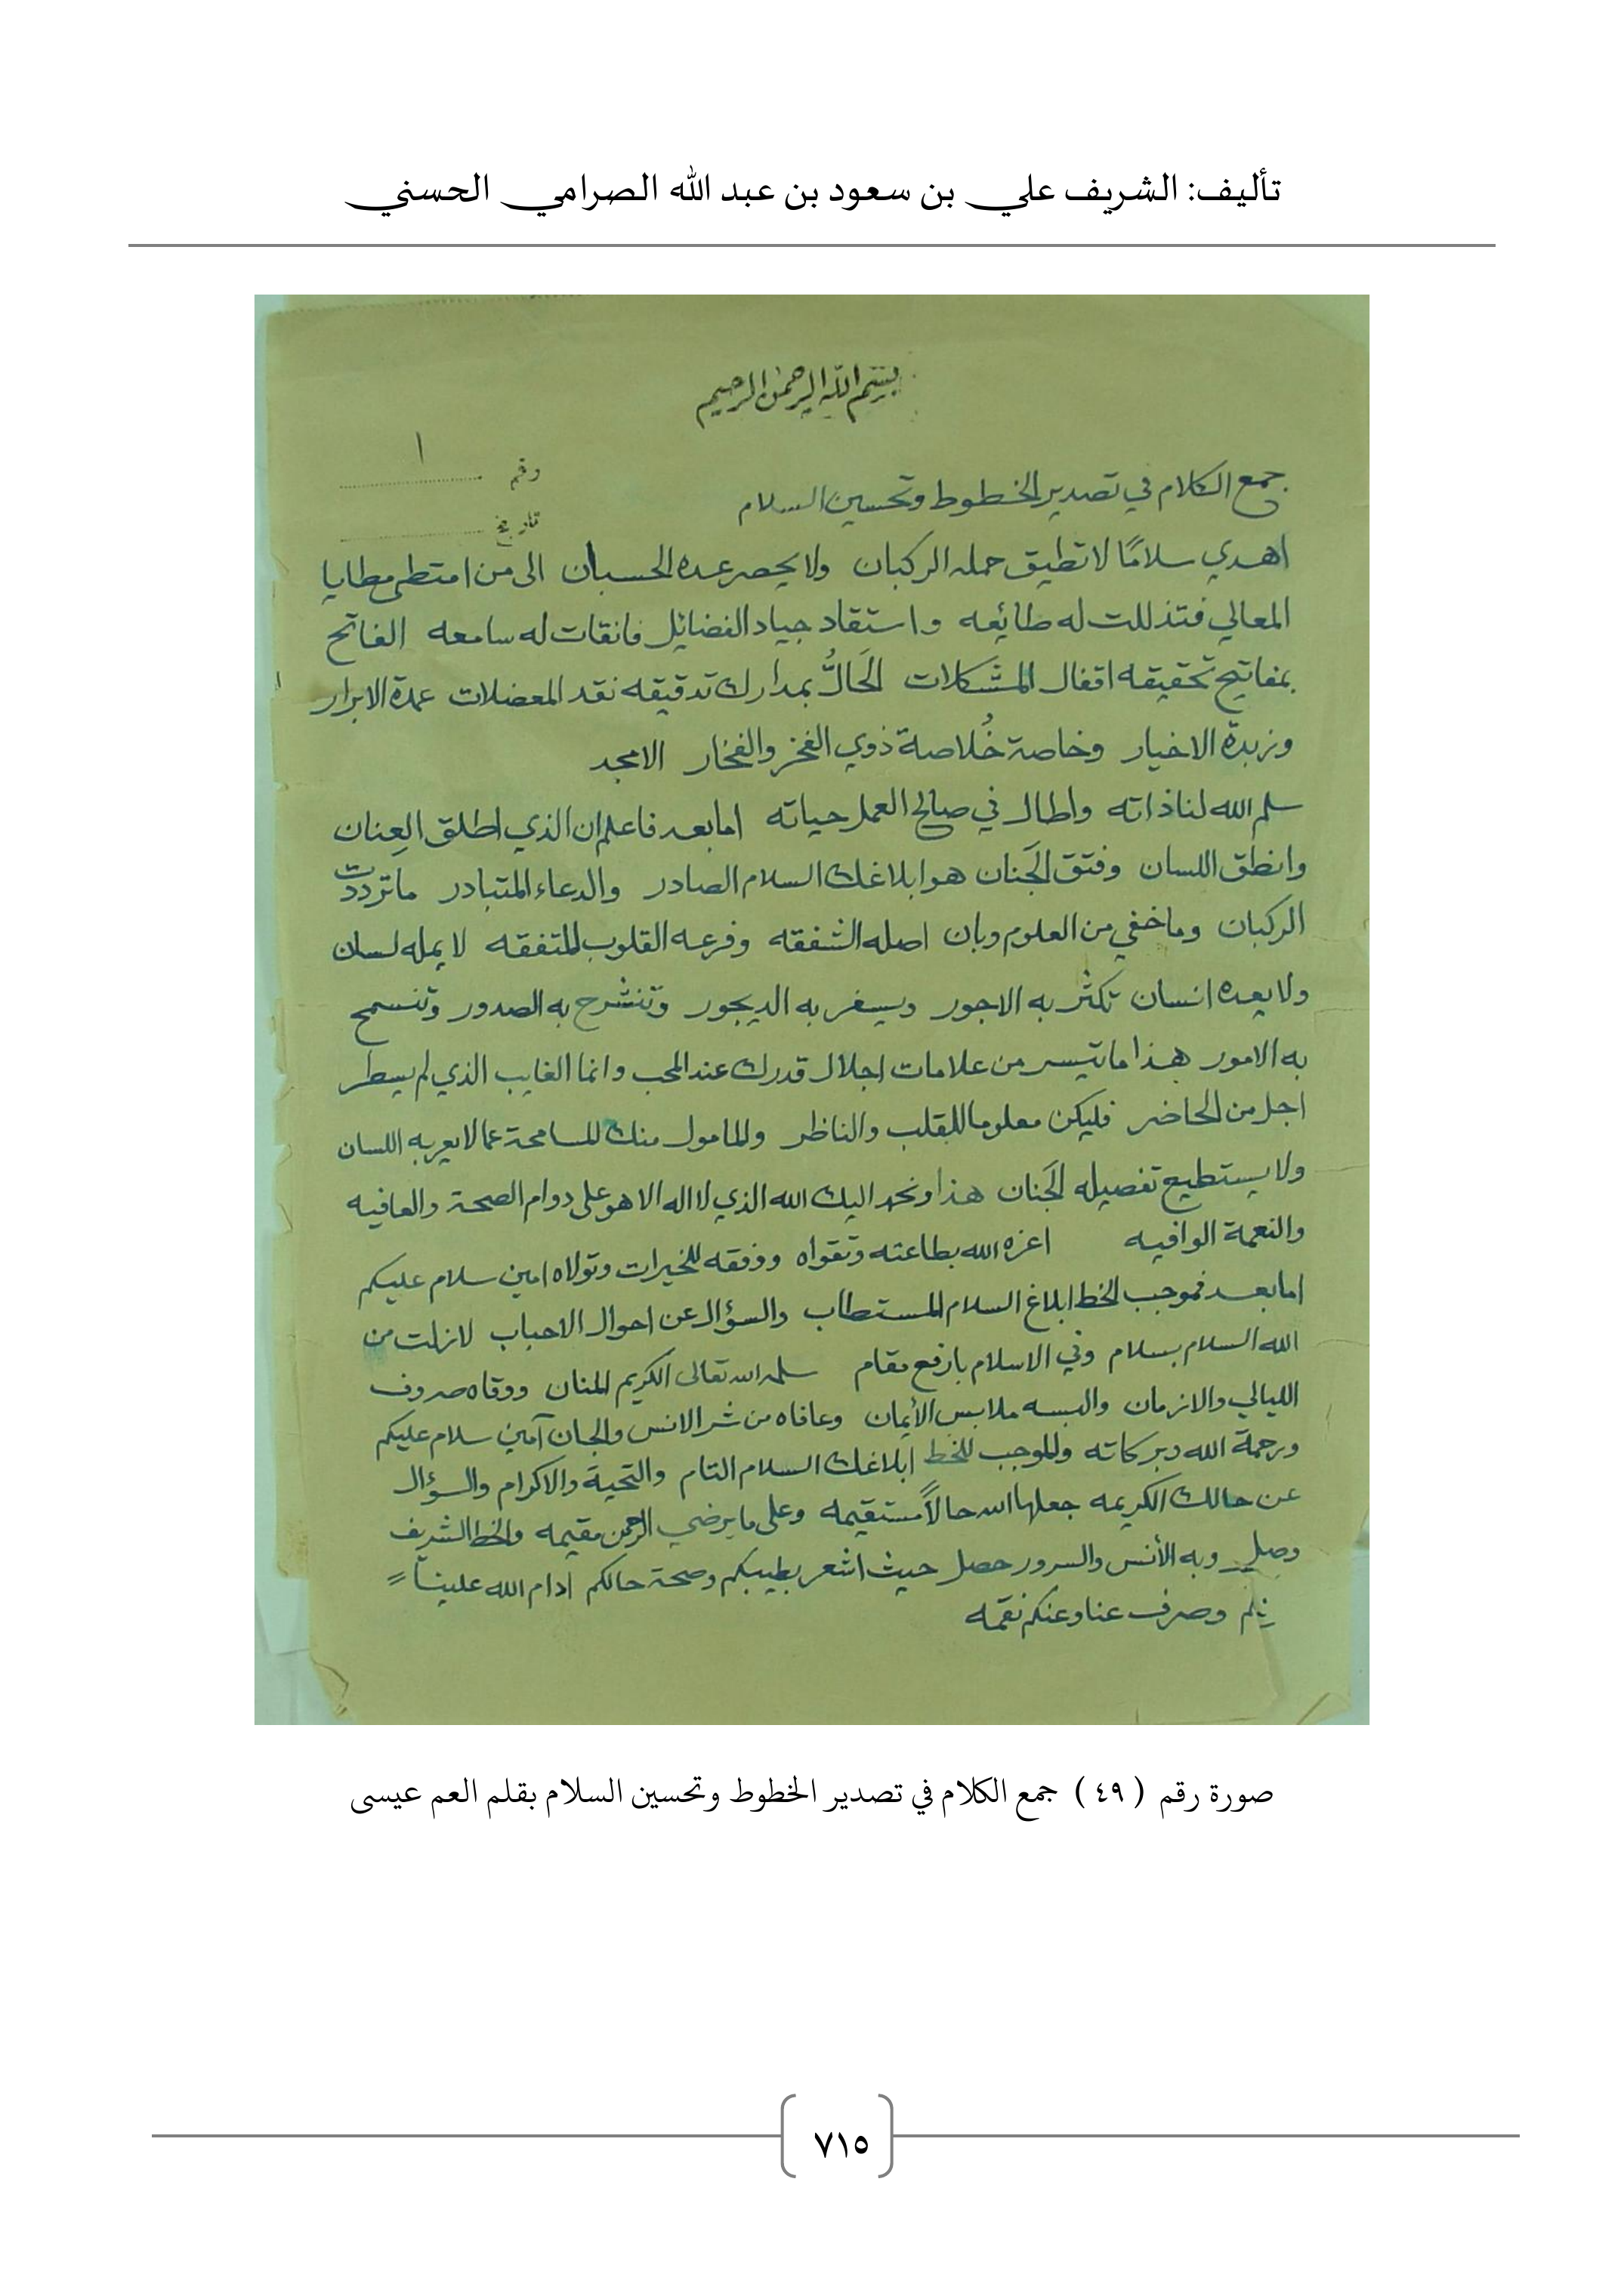 تأليف: الشريف علي بن سعود بن عبد الله الصرامي الحسني
بسم الله الرحمن الرحيم
رقم ١
تاريخ
جمع الكلام في تصدير الخطوط وتحسين السلام
اهدي سلامًا لا تطيق حمله الركبان ولا يحصر عده الحسبان الى من امتطى مطايا
المعالي فتذللت له طائعه واستقاد جياد الفضائل فانقات له سامعه الفاتح
بمفاتيح تحقيقه اقفال المشكلات الحَالُّ بمدارك تدقيقه نقد المعضلات عمدة الابرار
وزبدة الاخيار وخاصة خُلاصة ذوي الفخر والفخار الامجد
سلم الله لنا ذاته واطال في صالح العمل حياته اما بعد فاعلم ان الذي اطلق العِنان
وانطق اللسان وفتق الجَنان هو ابلاغك السلام الصادر والدعاء المتبادر ما ترددت
الركبان وما خفي من العلوم وبان اصله الشفقه وفرعه القلوب المتفقه لا يمله لسان
ولا يعده انسان تكثر به الاجور ويسفر به الديجور وتنشرح به الصدور وتنسمح
به الامور هذا ما تيسر من علامات اجلال قدرك عند المحب وانما الغايب الذي لم يسطر
اجل من الحاضر فليكن معلوما للقلب والناظر والمامول منك المسامحة عما لا يعربه اللسان
ولا يستطيع تفصيله الجَنان هذا ونحمد اليك الله الذي لا اله الا هو على دوام الصحة والعافيه
والنعمة الوافيه اعزه الله بطاعته وتقواه ووفقه للخيرات وتولاه امين سلام عليكم
اما بعد فموجب الخط ابلاغ السلام المستطاب والسؤال عن احوال الاحباب لازلت من
الله السلام بسلام وفي الاسلام بارفع مقام سلمه الله تعالى الكريم المنان ووقاه صروف
الليالي والازمان والبسه ملابس الأيمان وعافاه من شر الانس والجان آمين سلام عليكم
ورحمة الله وبركاته والموجب للخط ابلاغك السلام التام والتحية والاكرام والسؤال
عن حالك الكريمه جعلها الله حالاً مستقيمه وعلى ما يرضي الرحمن مقيمه والخط الشريف
وصل وبه الأنس والسرور حصل حيث اشعر بطيبكم وصحة حالكم ادام الله علينا =
وصرف عنا وعنكم نقمه
صورة رقم ( ٤٩ ) جمع الكلام في تصدير الخطوط وتحسين السلام بقلم العم عيسى
٧١٥